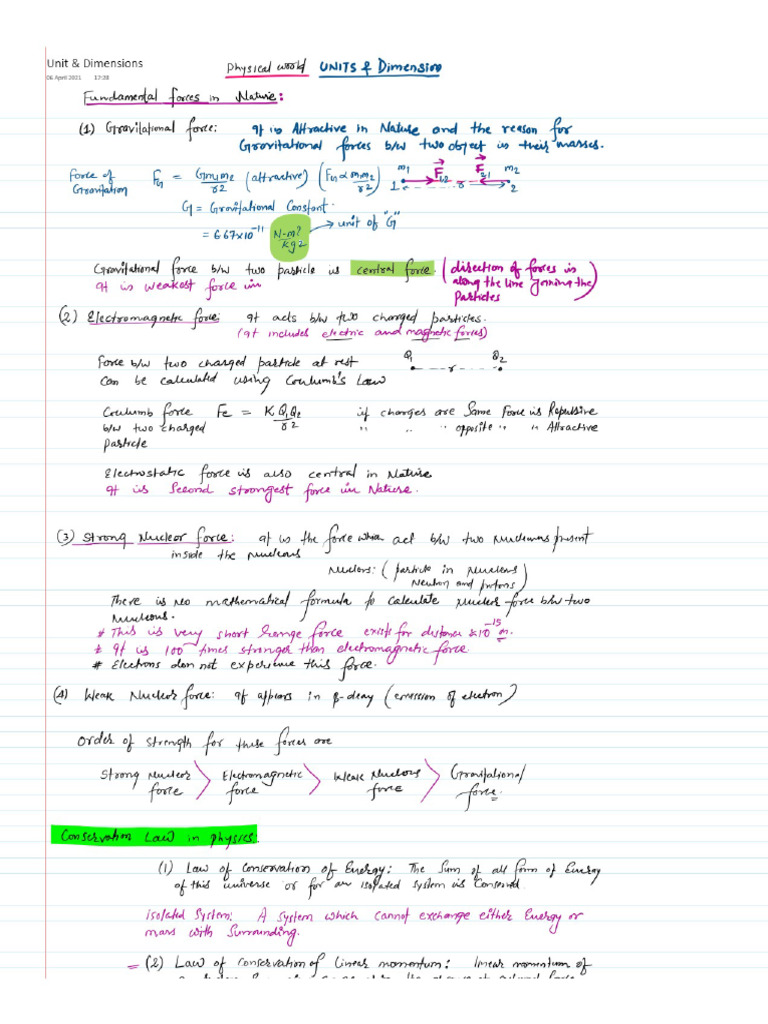 Unit & Dimensions
06 April 2021 17:28
Physical world UNITS & Dimension
Fundamental forces in Nature:
(1) Gravitational force: It is Attractive in Nature and the reason for
Gravitational forces b/w two object is their masses.
Force of Gravitation F_G = Gm₁m₂/r2 (attractive) (F_G ∝ m₁m₂/r2) m₁ F₁₂ r F₂₁ m₂ 1 2
G = Gravitational Constant.
= 6.67×10⁻¹¹ N-m²/kg2 → unit of "G"
Gravitational force b/w two particle is central force. (direction of forces is
It is weakest force in along the line joining the
Particles)
(2) Electromagnetic force: It acts b/w two charged particles.
(It includes electric and magnetic forces)
Force b/w two charged particle at rest Q₁ r Q₂
can be calculated using Coulumb's Law
Coulumb force Fe = K Q₁Q₂/r2 if charges are Same Force is Repulsive
b/w two charged " " " opposite " " Attractive
particle
Electrostatic force is also central in Nature
It is Second strongest force in Nature.
(3) Strong Nuclear force: It is the force which act b/w two nucleons present
inside the nucleous
Nucleons: (particle in nucleus
Neutron and protons)
There is no mathematical formula to calculate nuclear force b/w two
nucleous.
# This is very short range force exists for distance ≈10⁻¹⁵ m.
# It is 100 times stronger than electromagnetic force.
# Electrons don not experience this force.
(4) Weak Nuclear force: It appears in β-decay (emission of electron)
Order of strength for these forces are
Strong Nuclear > Electromagnetic > Weak Nucleous > Gravitational
force force force force.
Conservation Law in physics:
(1) Law of conservation of Energy: The Sum of all form of Energy
of this universe or for an isolated system is Conserved
isolated System: A system which cannot exchange either Energy or
mass with Surrounding.
= (2) Law of conservation of Linear momentum: linear momentum of